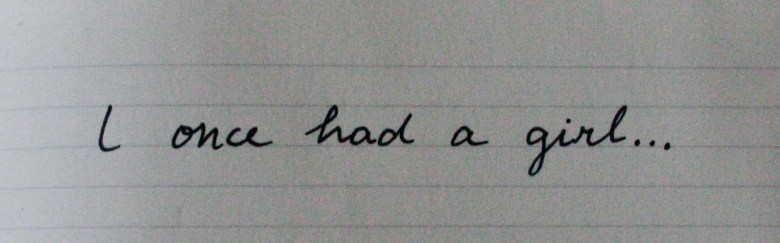 I once had a girl...